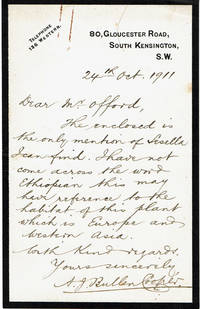 TELEPHONE
136 WESTERN.
80, GLOUCESTER ROAD,
SOUTH KENSINGTON,
S.W.
24th Oct. 1911
Dear Mr Offord,
The enclosed is
the only mention of Sesella
I can find. I have not
come across the word
Ethiopian this may
have reference to the
habitat of this plant
which is Europe and
Western Asia.
With Kind regards.
Yours sincerely
A. J. Bullen